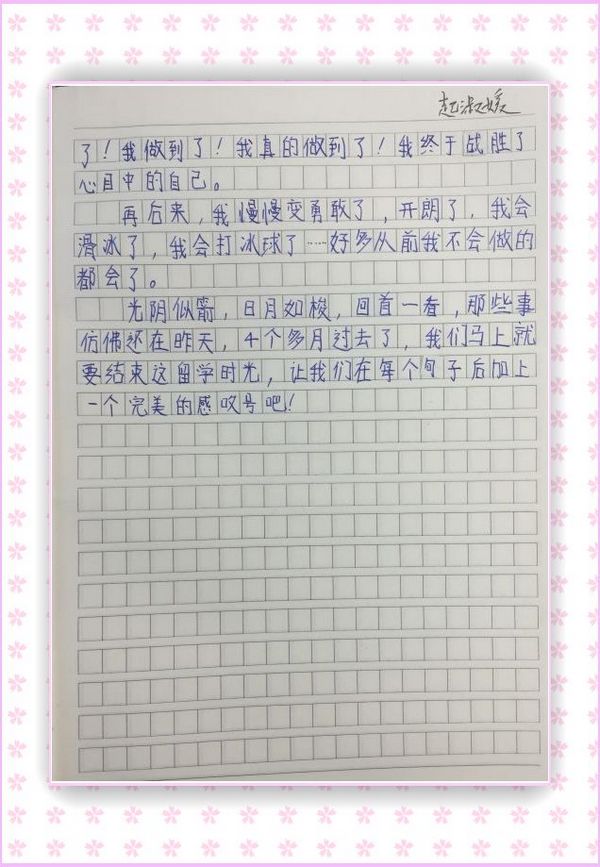 赵淑媛
了！我做到了！我真的做到了！我终于战胜了
心目中的自己。
再后来，我慢慢变勇敢了，开朗了，我会
滑冰了，我会打冰球了……好多从前我不会做的
都会了。
光阴似箭，日月如梭，回首一看，那些事
仿佛还在昨天，4个多月过去了，我们马上就
要结束这留学时光，让我们在每个句子后加上
一个完美的感叹号吧！